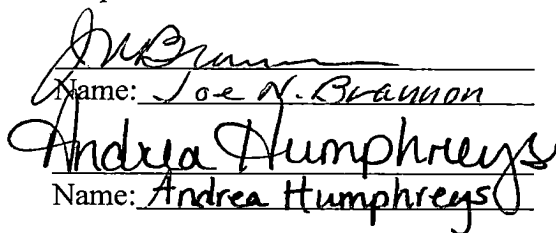 JNBrannon
Name: Joe N. Brannon
Andrea Humphreys
Name: Andrea Humphreys